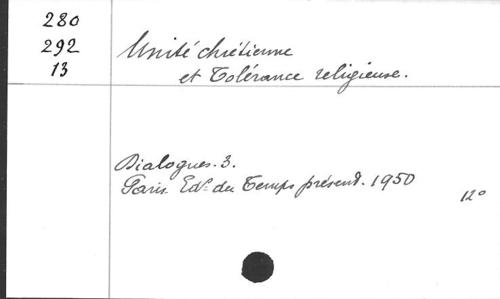 280
292
13
Unité chrétienne
et Tolérance religieuse.
Dialogues. 3.
Paris. Edns du Temps présent. 1950
12°